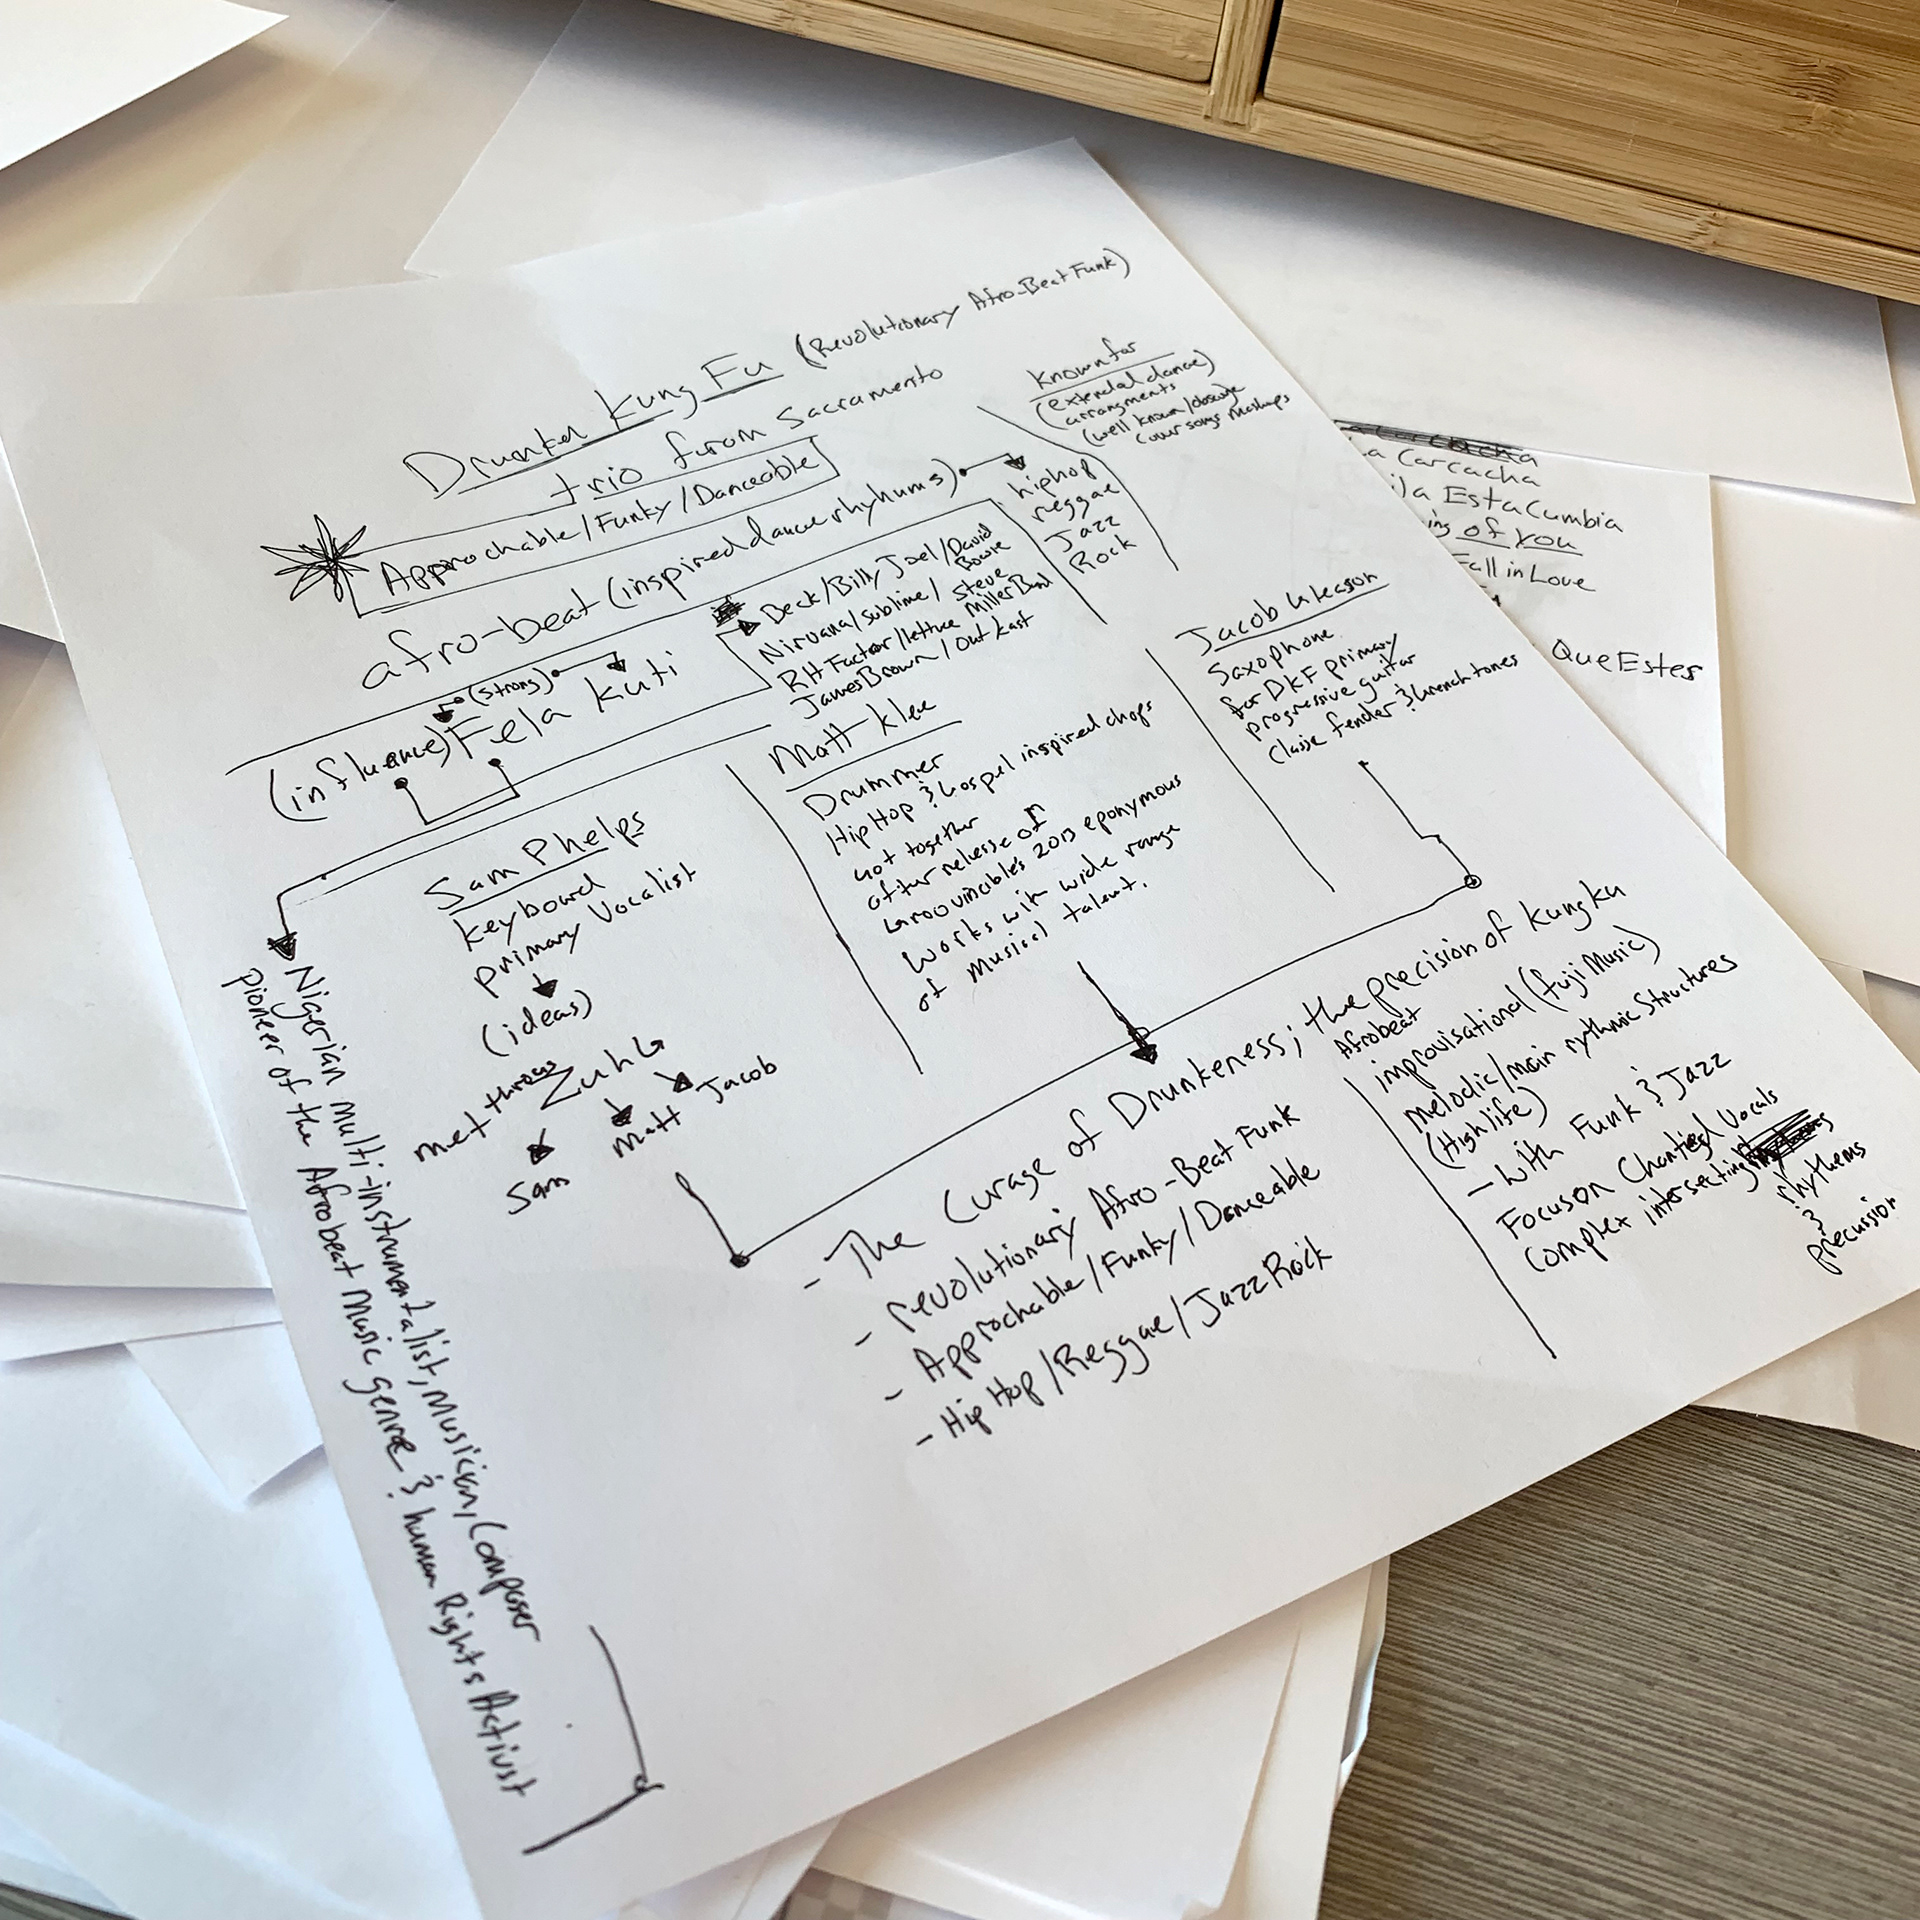 Drunken Kung Fu (Revolutionary Afro-Beat Funk)
trio from Sacramento
Approchable/Funky/Danceable
afro-beat (inspired dance rhyhums)
hiphop
reggae
Jazz
Rock
Known for
(extended dance)
arrangments
(well known/obscure
cover songs mashups
(strong)
(influence) Fela Kuti
Beck/Billy Joel/David Bowie
Nirvana/sublime/Steve Miller Band
RH Factor/lettuce
James Brown/Out Kast
Sam Phelps
keyboard
primary Vocalist
(ideas)
met throug ZuhG
Sam
Matt
Jacob
Matt Klee
Drummer
Hip Hop & Gospel inspired chops
Got together
after release of
Groovincible's 2013 eponymous
Works with wide range
of musical talent.
Jacob Gleason
Saxophone
for DKF primary
progressive guitar
Classe fender & Wrench tones
- The Curage of Drunkeness; the precision of kungku
- revolutionary Afro-Beat Funk
- Approchable/Funky/Danceable
- Hip Hop/Reggae/Jazz Rock
Afrobeat
improvisational (fuji Music)
melodic/main rythmic Structures
(Highlife)
- with Funk & Jazz
Focus on Chanted Vocals
Complex intersecting
rhythems
&
precussion
Nigerian multi-instrumentalist, musician, Composer
pioneer of the Afrobeat music genre & human Rights Activst
a Carcacha
la Esta Cumbia
ing of you
Fall in Love
Que Estes